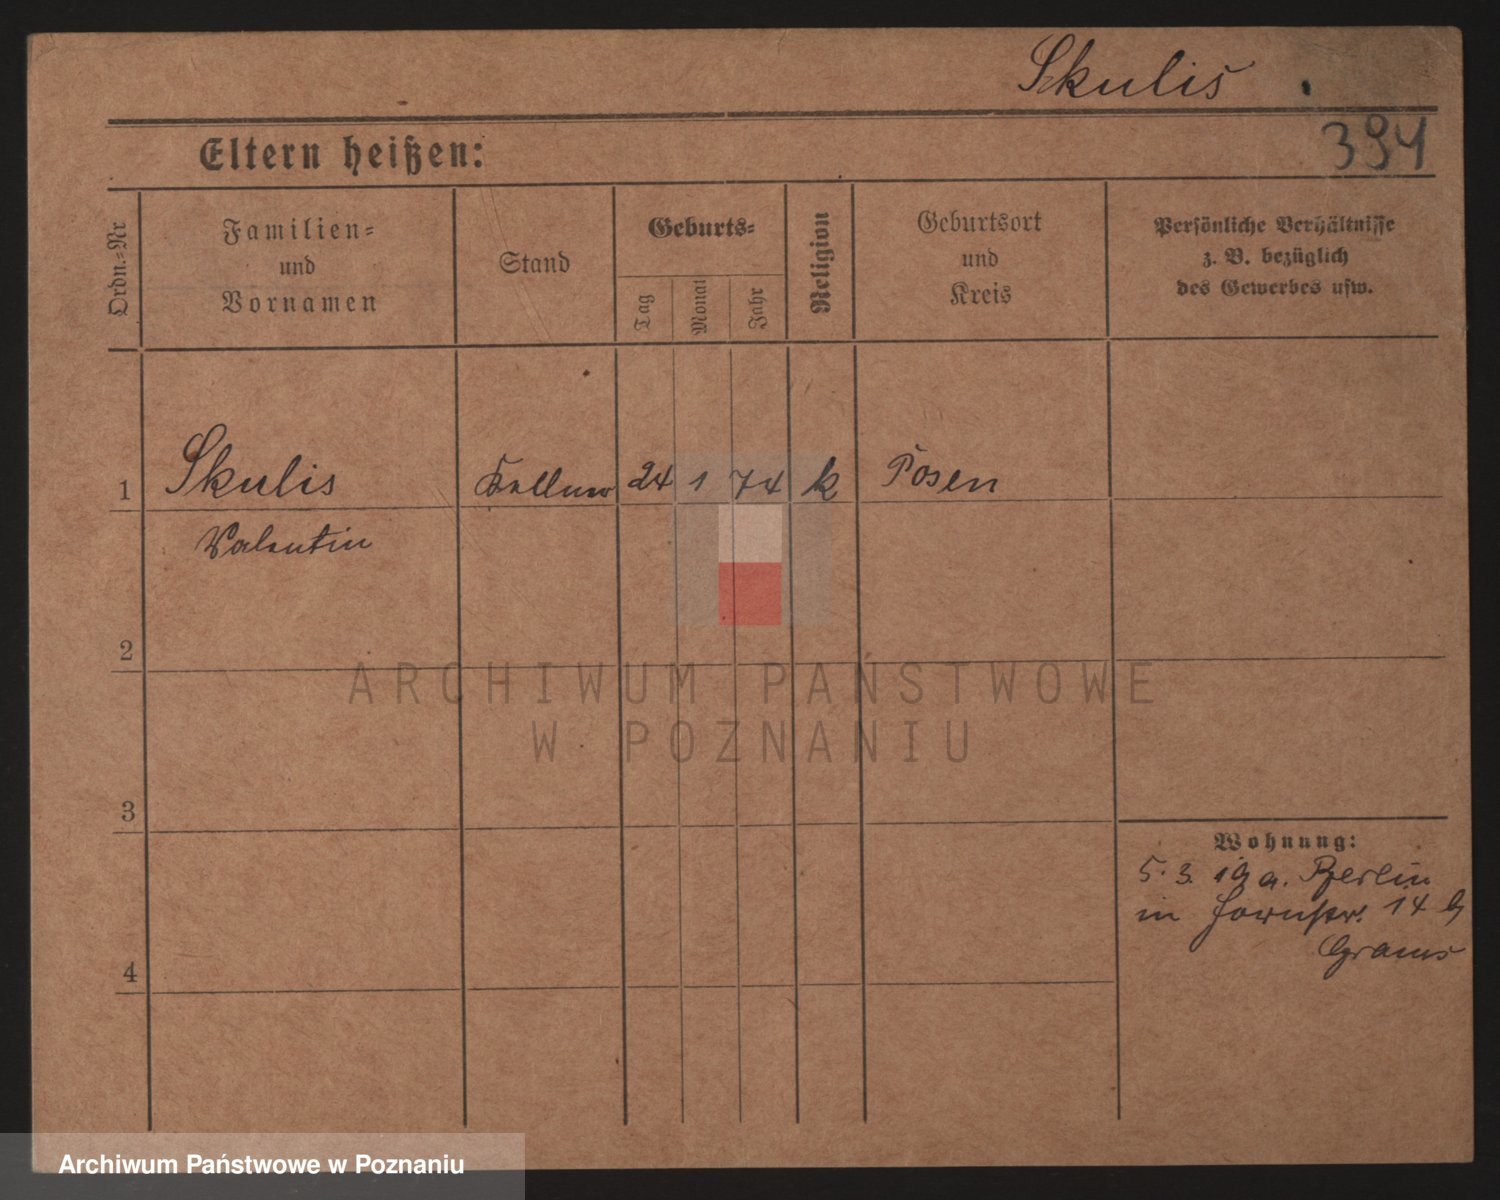 Skulis
394
Eltern heißen:
Ordn.-Nr
Familien-
und
Vornamen
Stand
Geburts-
Tag
Monat
Jahr
Religion
Geburtsort
und
Kreis
Persönliche Verhältnisse
z. B. bezüglich
des Gewerbes usw.
1 Skulis Kellner 24 1 74 k Posen
Valentin
2
3
4
Wohnung:
5. 3. 19 a. Berlin
in 14 b
Grams
ARCHIWUM PAŃSTWOWE
W POZNANIU
Archiwum Państwowe w Poznaniu